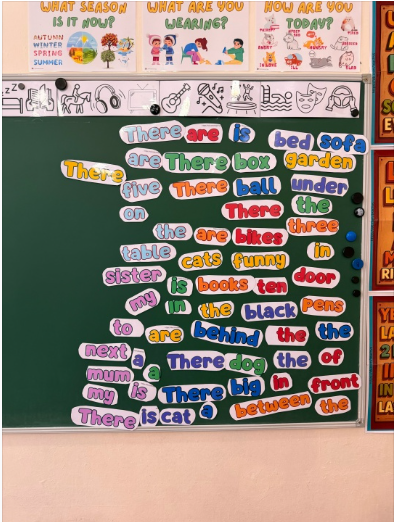 WHAT SEASON
IS IT NOW?
AUTUMN
WINTER
SPRING
SUMMER
WHAT ARE YOU
WEARING?
HOW ARE YOU
TODAY?
There are is bed sofa
are There box garden
There
five There ball under
on There the
the are bikes three
table cats funny in
sister is books ten door
my in the black pens
to are behind the the
next a There dog the of
mum a
my is There big in front
There is cat a between the